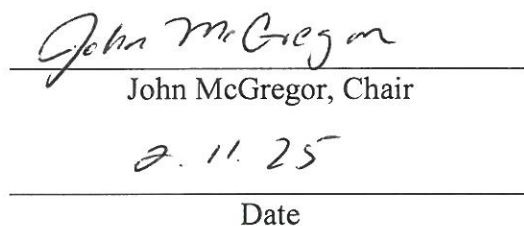 John McGregor
John McGregor, Chair
2. 11. 25
Date